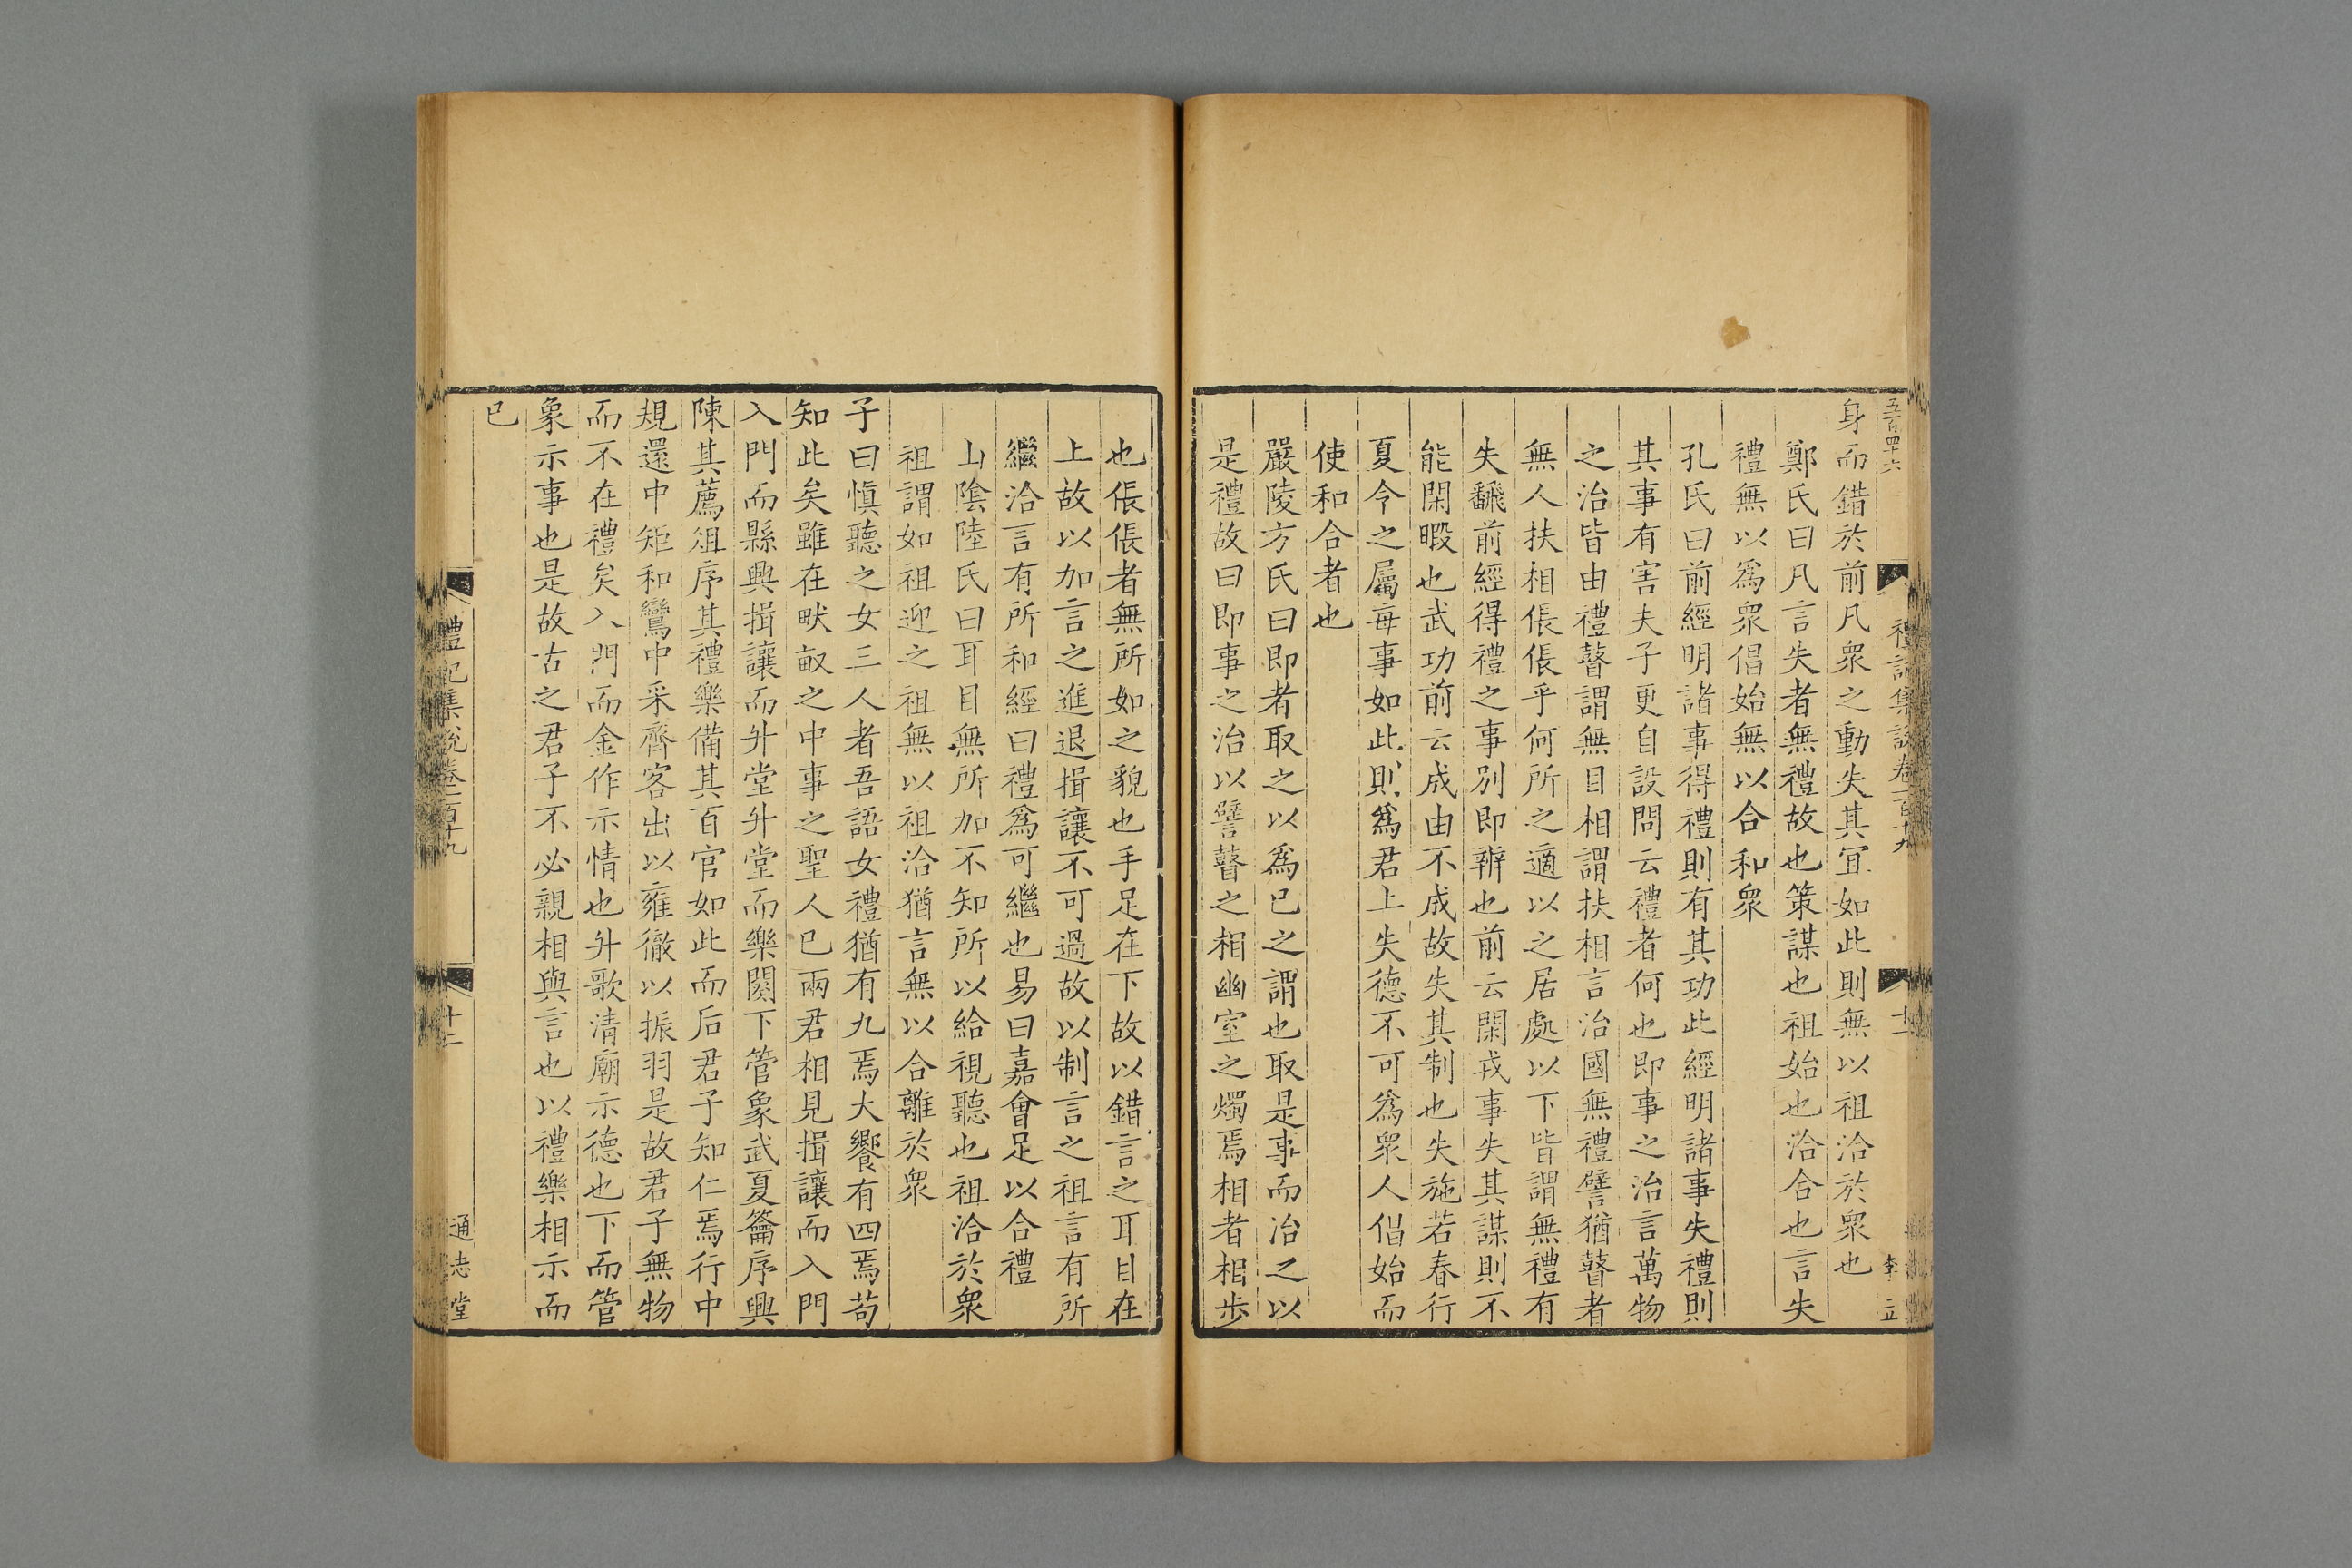 五百四十六
禮記集說卷一百十九
十二
李立
身而錯於前凡衆之動失其宜如此則無以祖洽於衆也
鄭氏曰凡言失者無禮故也策謀也祖始也洽合也言失
禮無以爲衆倡始無以合和衆
孔氏曰前經明諸事得禮則有其功此經明諸事失禮則
其事有害夫子更自設問云禮者何也即事之治言萬物
之治皆由禮瞽謂無目相謂扶相言治國無禮譬猶瞽者
無人扶相倀倀乎何所之適以之居處以下皆謂無禮有
失飜前經得禮之事別即辨也前云閑戎事失其謀則不
能閑暇也武功前云成由不成故失其制也失施若春行
夏令之屬每事如此則爲君上失德不可爲衆人倡始而
使和合者也
嚴陵方氏曰即者取之以爲已之謂也取是事而治之以
是禮故曰即事之治以譬瞽之相幽室之燭焉相者相步
也倀倀者無所如之貌也手足在下故以錯言之耳目在
上故以加言之進退揖讓不可過故以制言之祖言有所
繼洽言有所和經曰禮爲可繼也易曰嘉會足以合禮
山陰陸氏曰耳目無所加不知所以給視聽也祖洽於衆
祖謂如祖迎之祖無以祖洽猶言無以合離於衆
子曰愼聽之女三人者吾語女禮猶有九焉大饗有四焉苟
知此矣雖在畎畝之中事之聖人已兩君相見揖讓而入門
入門而縣興揖讓而升堂升堂而樂闋下管象武夏籥序興
陳其薦俎序其禮樂備其百官如此而后君子知仁焉行中
規還中矩和鸞中采齊客出以雍徹以振羽是故君子無物
而不在禮矣入門而金作示情也升歌清廟示德也下而管
象示事也是故古之君子不必親相與言也以禮樂相示而
已
禮記集說卷一百十九
十二
通志堂